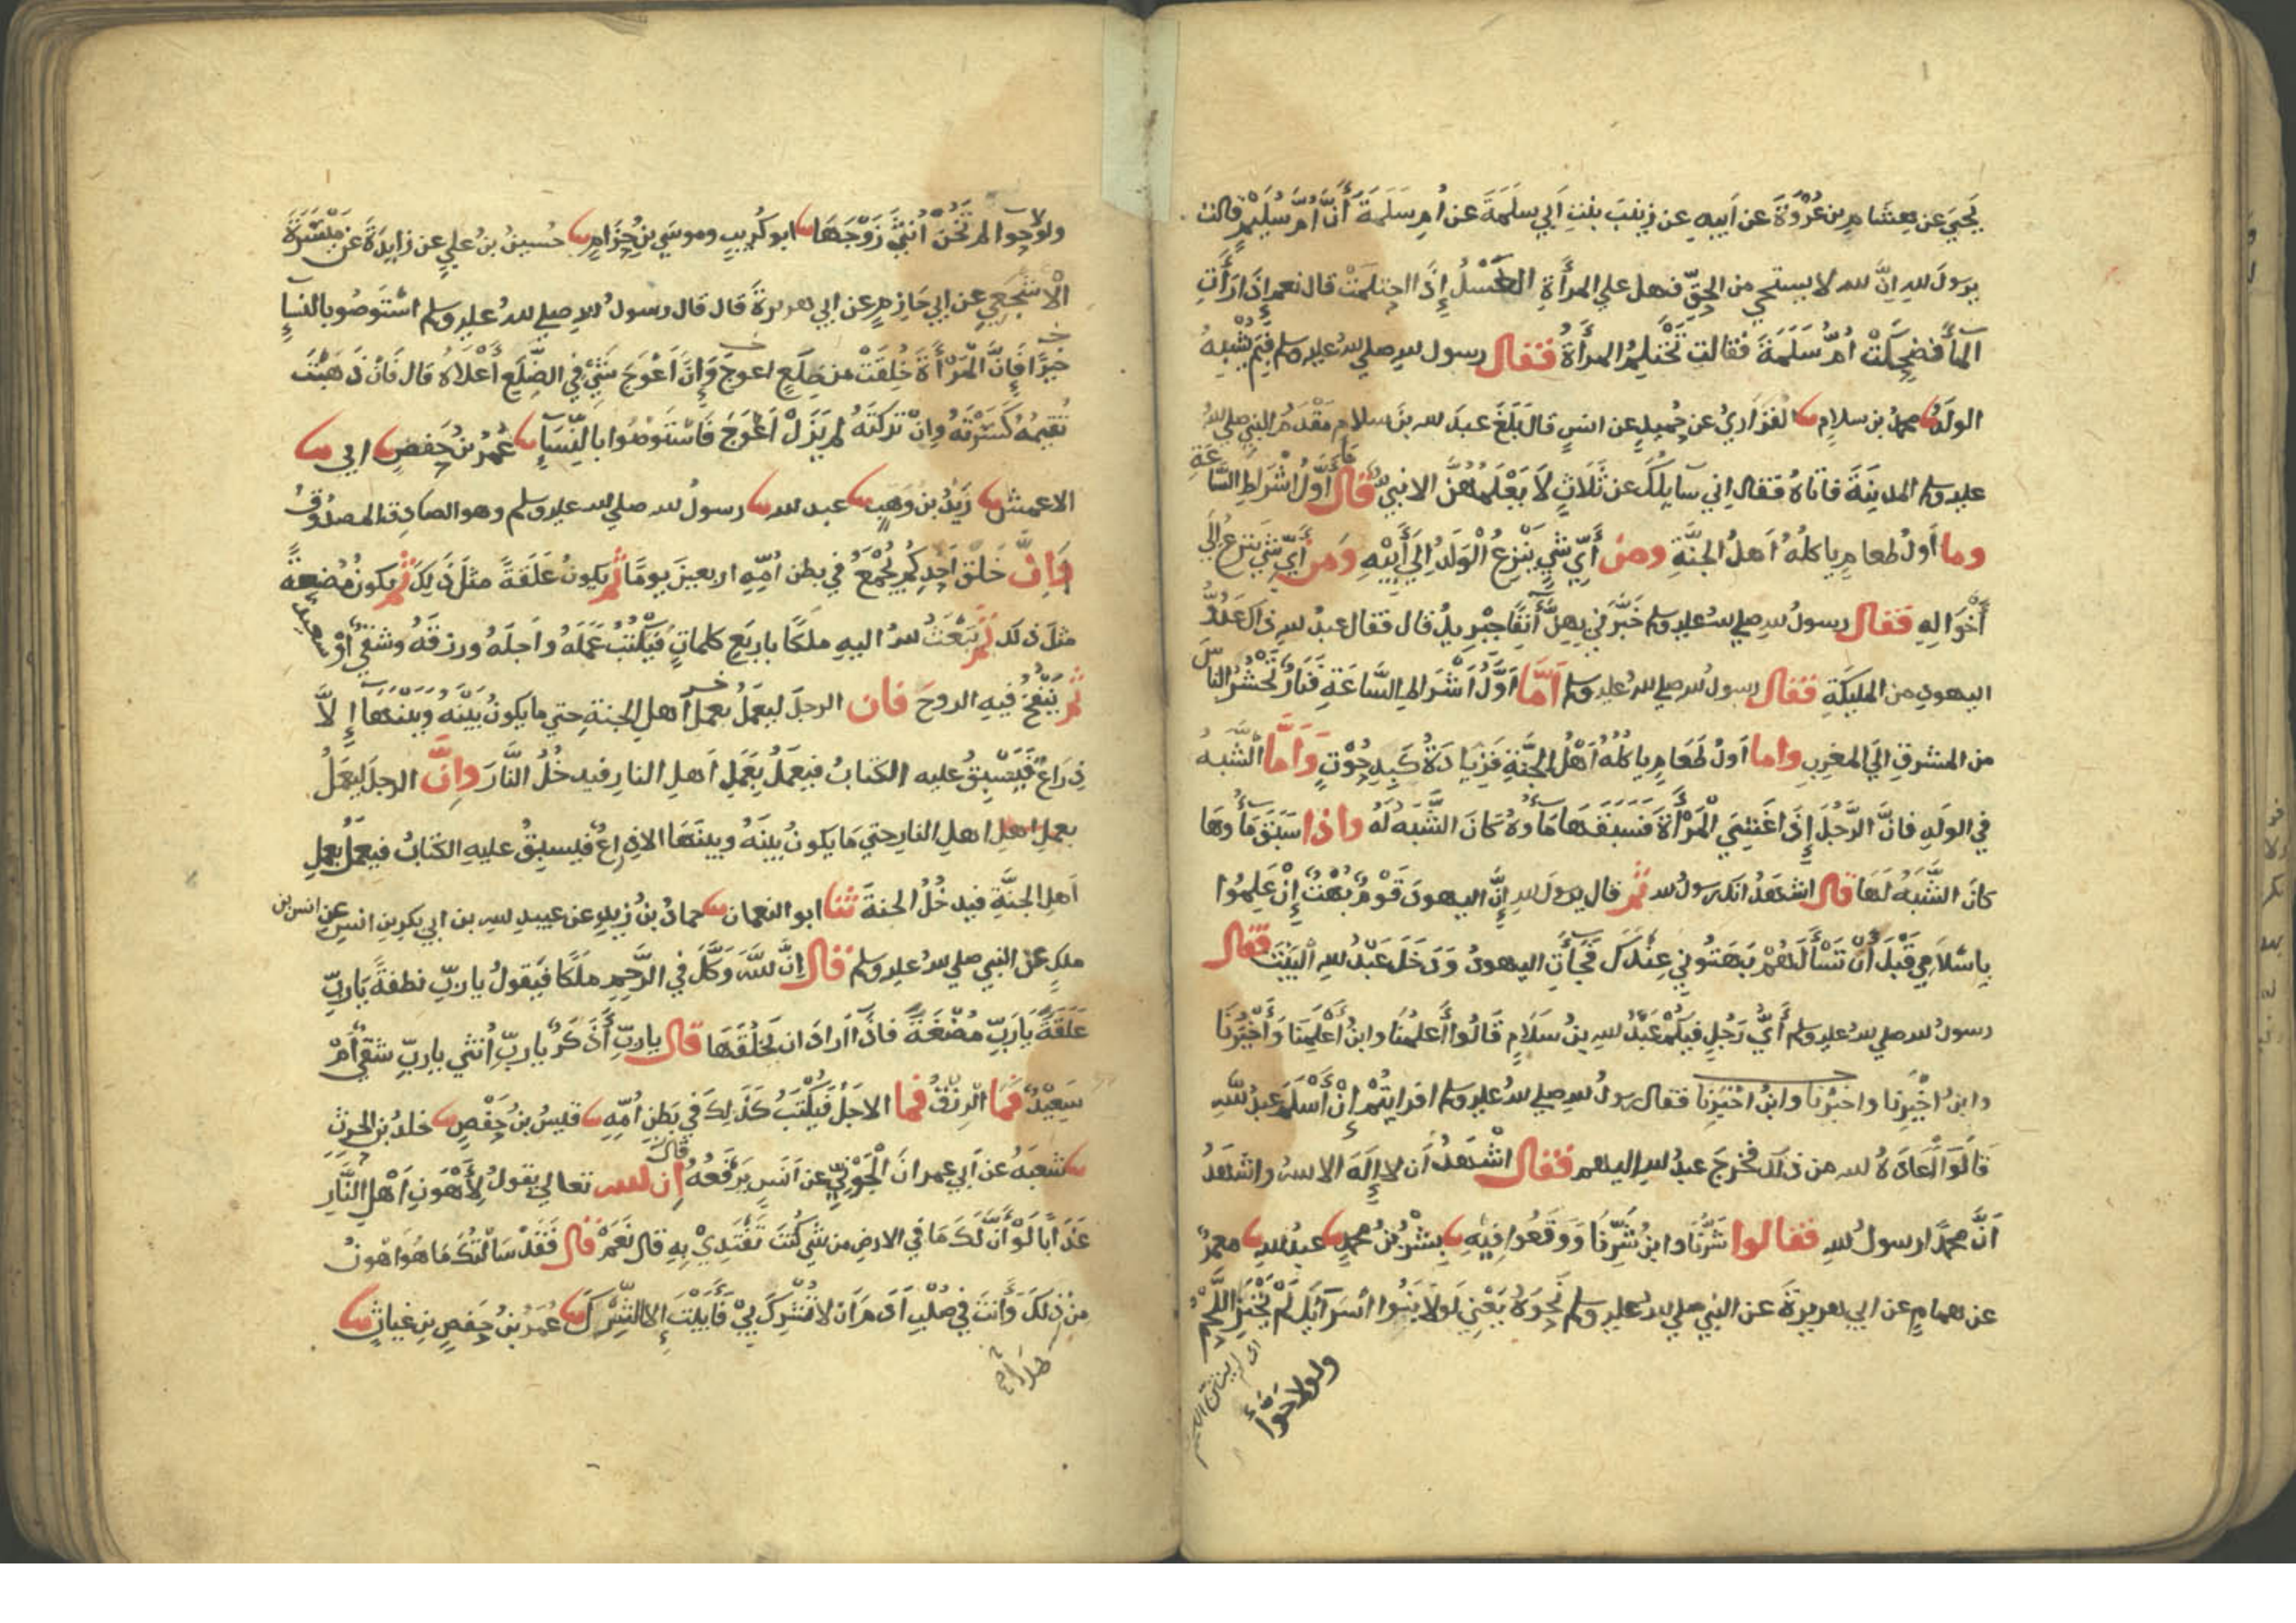 يحيى عن هشام بن عروة عن ابيه عن زينب بنت ابي سلمة عن ام سلمة أنّ أمّ سُليم قالت
يرسول لله انّ لله لا يستحي من الحقّ فهل علي المرأة الغسل إذا احتلمت قال نعم إذا رأتِ
المآ فضحكت امّ سلمة فقالت تحتلم المرأة فقال رسول لله صلي لله عليه وسلم فيم يُشبه
الولدُ محمد بن سلام الفزاري عن حُميد عن انس قال بلغ عبد لله بن سلام مقدم النبي صلي لله
عليه وسلم المدينة فاتاه فقال اني سآيلك عن ثلاث لا يعلمهن الا نبي قال ما أوّل أشراط السّاعة
وما أول طعام ياكله أهل الجنّة ومن أيّ شي ينزع الولد إلي أبيه ومن أيّ شي ينزع إلي
أخواله فقال رسول لله صلي لله عليه وسلم خبّرني بهنّ آنفًا جبريل قال فقال عبد لله ذاك عدوّ
اليهود من المليكة فقال رسول لله صلي لله عليه وسلم امّا اوّل أشراط السّاعة فنار تحشر الناس
من المشرق الي المغرب واما اول طعام ياكله أهل الجنّة فزيادة كبد حوت وامّا الشّبه
في الولد فانّ الرّجل إذا غشي المرأة فسبقها مآوه كان الشّبه له واذا سبق مآوها
كان الشّبه لها قال اشهد انك رسول لله ثم قال يرسول لله إنّ اليهود قوم بهت إن علموا
باسلامي قبل أن تسألهم بهتوني عندك فجآت اليهود ودخل عبد لله البيت فقال
رسول لله صلي لله عليه وسلم أيّ رجل فيكم عبد لله بن سلام قالوا أعلمنا وابن أعلمنا وأخبرنا
وابن اخيرنا واخبرنا وابن اخيرنا فقال رسول لله صلي لله عليه وسلم افرايتم إن أسلم عبد لله
قالوا أعاذه لله من ذلك فخرج عبد لله اليهم فقال اشهد أن لا إله الا لله واشهد
انّ محمدا رسول لله فقالوا شرّنا وابن شرّنا ووقعوا فيه بشر بن محمد عبد لله معمر
عن همام عن ابي هريرة عن النبي صلي لله عليه وسلم نحوه يعني لولا بنوا اسرآيل لم يخنز اللّحم
اي لم ينتن اللحم
ولولا حوّآ
ولولا حوا لم تخن أنثي زوجها ابو كريب وموسي بن حزام حسين بن علي عن زايدة عن ميسرة
الاشجعي عن ابي حازم عن ابي هريرة قال قال رسول لله صلي لله عليه وسلم استوصوا بالنسآ
خيرًا فإنّ المرأة خلقت من ضلع اعوج وإنّ أعوج شي في الضّلع أعلاه قال فان ذهبت
تقيمه كسرته وان تركته لم يزل أعوج فاستوصوا بالنّسآ عمر بن حفص ابي
الاعمش زيد بن وهب عبد لله رسول لله صلي لله عليه وسلم وهو الصادق المصدوق
إنّ خلق احدكم يجمع في بطن أمّه اربعين يومًا ثم يكون علقةً مثل ذلك ثم يكون مضغةً
مثل ذلك ثم يبعث لله اليه ملكًا باربع كلماتٍ فيكتب عمله واجله ورزقه وشقي أو سعيد
ثم ينفخ فيه الروح فان الرجل ليعمل بعمل أهل الجنة حتي ما يكون بينه وبينها إلا
ذراع فيسبق عليه الكتاب فيعمل بعمل اهل النار فيدخل النار وانّ الرجل ليعمل
بعمل اهل اهل النار حتي ما يكون بينه وبينها الا ذراع فيسبق عليه الكتاب فيعمل بعمل
اهل الجنّة فيدخل الجنة ثنا ابو النعمان حماد بن زيد عن عبيد لله بن ابي بكر بن انس عن انس بن
ملك عن النبي صلي لله عليه وسلم قال إنّ لله وكّل في الرّحم ملكًا فيقول يا ربّ نطفة يا ربّ
علقة يا ربّ مضغة فاذا أراد ان يخلقها قال يا ربّ أذكر يا ربّ أنثي يا ربّ شقي أم
سعيد فما الرزق فما الاجل فيكتب كذلك في بطن امّه قيس بن حفص خلد بن الحرث
شعبه عن ابي عمران الجوني عن انس يرفعه قال إن لله تعالي يقول لأهون أهل النّار
عذابًا لو أنّ لك ما في الارض من شي كنت تفتدي به قال نعم قال فقد سالتك ما هو اهون
من ذلك وأنت في صلب ادم ان لا تشرك بي فأبيت إلا الشّرك عمر بن حفص بن غياث